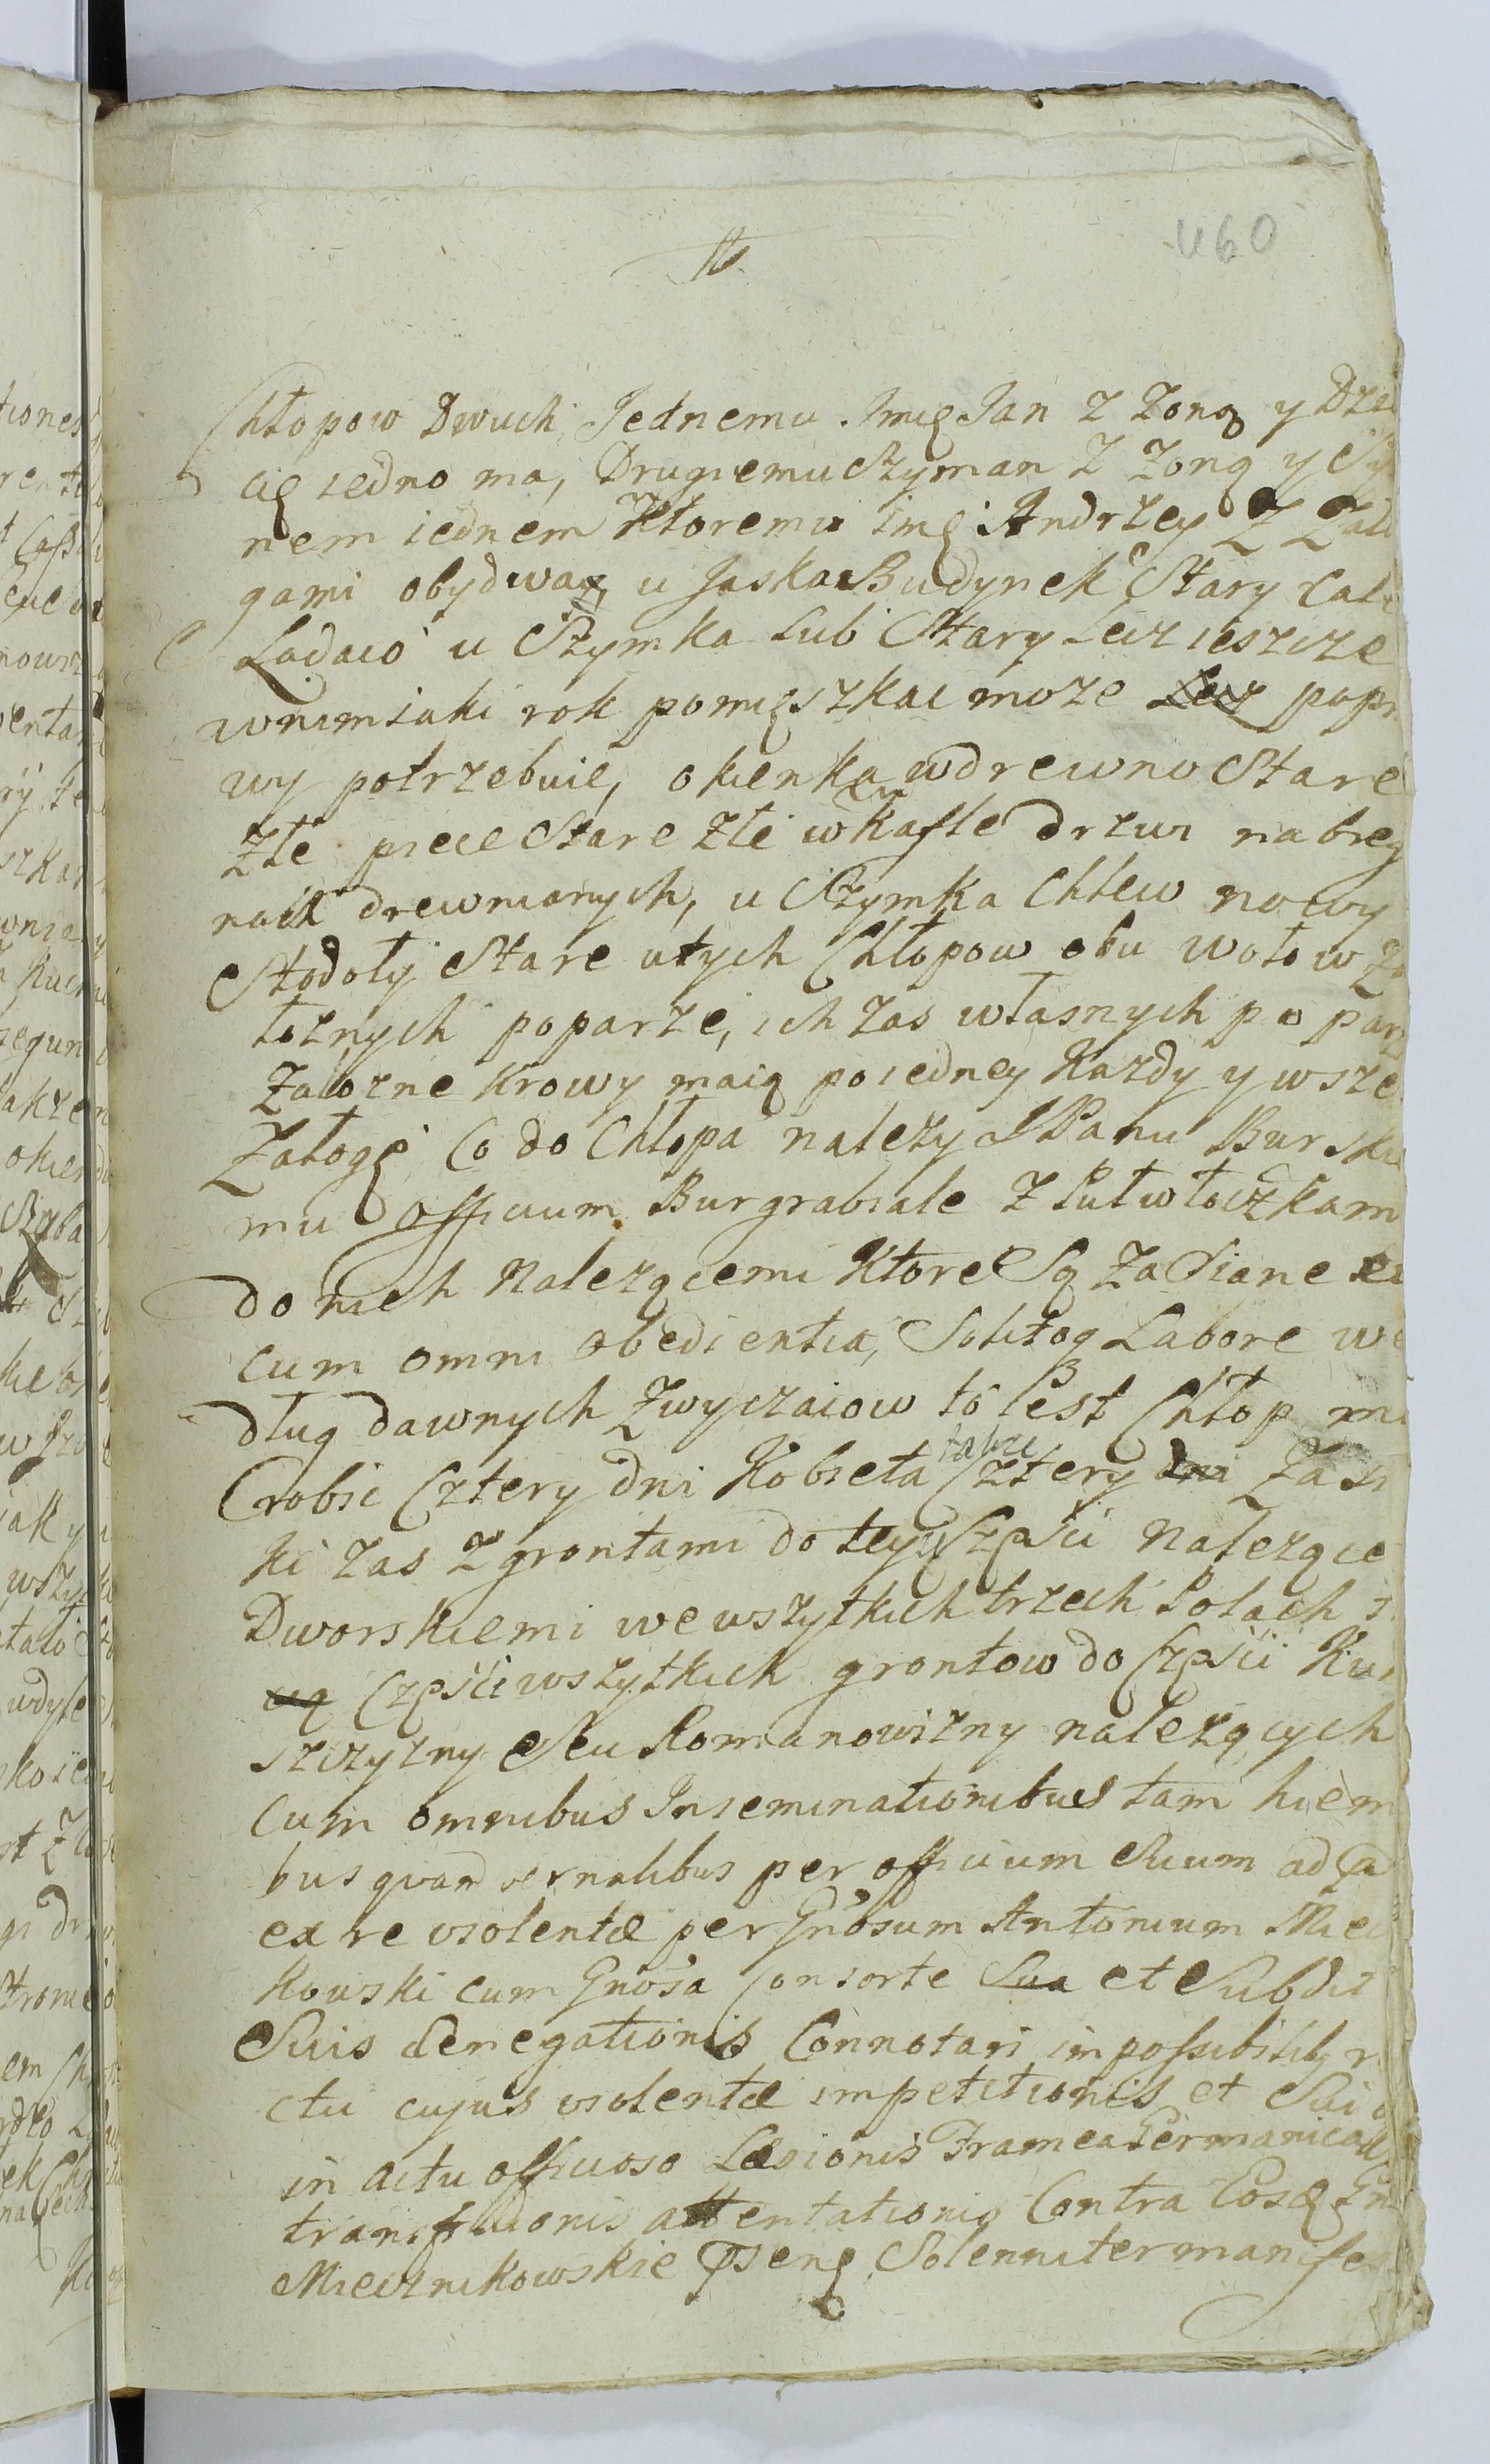 460
Chłopow Dwuch, Jednemu Imię Jan z Zoną y Dzie
cię iedno ma, Drugiemu Szyman z Zoną y Sy
nem iednem Ktoremu imę Andrzey Z Zało
gami obydway, u Jaska Budynek Stary cale
Ladaio u Szymka lub Stary Lecz ieszcze
wnim iaki rok pomięszkac moze Lecz popr
wy potrzebuie, okienka wdrewno Stare
Złe piece Stare złe w kafle drzwi nabieg
nach drewnianych, u Szymka Chlew nowy
Stodoły Stare utych Chłopow obu wołow Za
łoznych poparze, ich zas własnych po parz
Załozne Krowy maią poiedney Kazdy y wsze
Załogę co do Chłopa nalezy JPanu Burskie
mu officium Burgrabiale z Pułwłoczkam
do nich Nalezącemi Ktore Są Zasiane
cum omni obedientia, Solitoq Labore we
dług dawnych Zwyczaiow to iest Chłop ma
robic Cztery dni Kobieta takze Cztery dni Zasi
ki zas z grontami do tey Części Nalezące
Dworskiemi we wszytkich trzech Polach
Części wszytkich grontow do Części Ku
szczyzny Seu Romanowizny nalezących
Cum omnibus Inseminationibus tam hiem
bus quam vernalibus per officium Suum ad
ex re violentæ per Gnosum Antonium Miec
kowski cum Gnosa Consorte Sua et Subdit
Suis denegationis Connotari impossibilitz
ctu cujus violentæ impetitionis et Sui
in actu officioso Læsionis Framea Germanica
transfusionis attentationis Contra Eosdz Gn
Miecznikowskie Psenę Solenniter manifes